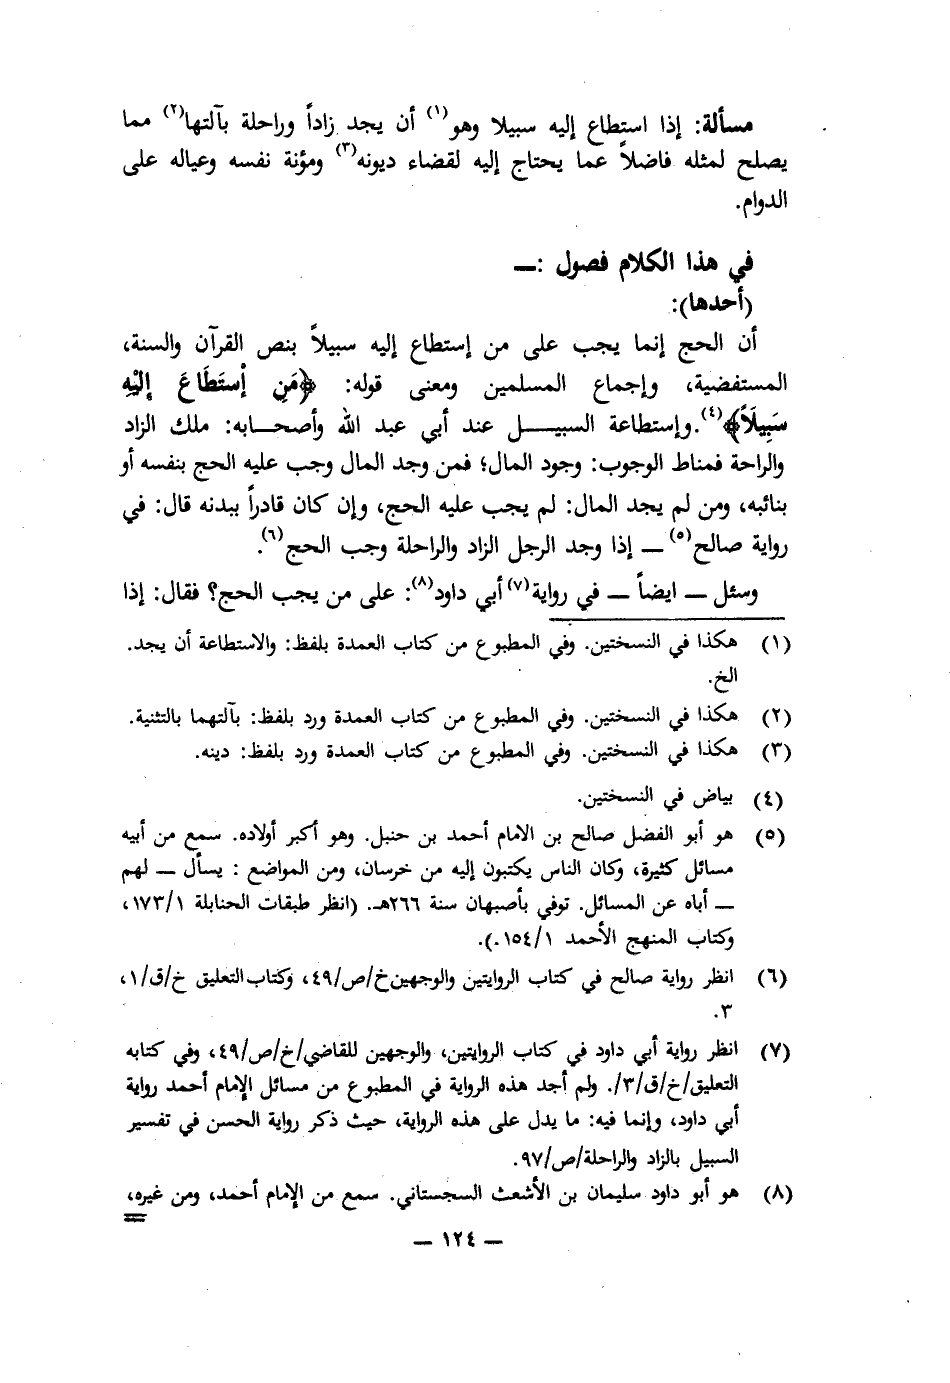 مسألة: إذا استطاع إليه سبيلا وهو(١) أن يجد زاداً وراحلة بآلتها(٢) مما
يصلح لمثله فاضلاً عما يحتاج إليه لقضاء ديونه(٣) ومؤنة نفسه وعياله على
الدوام.
في هذا الكلام فصول :ـ
(أحدها):
أن الحج إنما يجب على من إستطاع إليه سبيلاً بنص القرآن والسنة،
المستفضية، وإجماع المسلمين ومعنى قوله: ﴿مَنِ إْستَطَاعَ إِلَيْهِ
سَبِيلَاً﴾(٤). وإستطاعة السبيـــل عند أبي عبد الله وأصحـــابه: ملك الزاد
والراحة فمناط الوجوب: وجود المال؛ فمن وجد المال وجب عليه الحج بنفسه أو
بنائبه، ومن لم يجد المال: لم يجب عليه الحج، وإن كان قادراً ببدنه قال: في
رواية صالح(٥) ــ إذا وجد الرجل الزاد والراحلة وجب الحج(٦).
وسئل ــ ايضاً ــ في رواية(٧) أبي داود(٨): على من يجب الحج؟ فقال: إذا
(١) هكذا في النسختين. وفي المطبوع من كتاب العمدة بلفظ: والاستطاعة أن يجد.
الخ.
(٢) هكذا في النسختين. وفي المطبوع من كتاب العمدة ورد بلفظ: بآلتهما بالتثنية.
(٣) هكذا في النسختين. وفي المطبوع من كتاب العمدة ورد بلفظ: دينه.
(٤) بياض في النسختين.
(٥) هو أبو الفضل صالح بن الامام أحمد بن حنبل. وهو أكبر أولاده. سمع من أبيه
مسائل كثيرة، وكان الناس يكتبون إليه من خرسان، ومن المواضع : يسأل ــ لهم
ــ أباه عن المسائل. توفي بأصبهان سنة ٢٦٦هـ. (انظر طبقات الحنابلة ١/١٧٣،
وكتاب المنهج الأحمد ١/١٥٤.).
(٦) انظر رواية صالح في كتاب الروايتين والوجهين خ/ص/٤٩، وكتاب التعليق خ/ق/١،
٣.
(٧) انظر رواية أبي داود في كتاب الروايتين، والوجهين للقاضي/خ/ص/٤٩، وفي كتابه
التعليق/خ/ق/٣/. ولم أجد هذه الرواية في المطبوع من مسائل الإمام أحمد رواية
أبي داود، وإنما فيه: ما يدل على هذه الرواية، حيث ذكر رواية الحسن في تفسير
السبيل بالزاد والراحلة/ص/٩٧.
(٨) هو أبو داود سليمان بن الأشعث السجستاني. سمع من الإمام أحمد، ومن غيره،
=
ــ ١٢٤ ــ